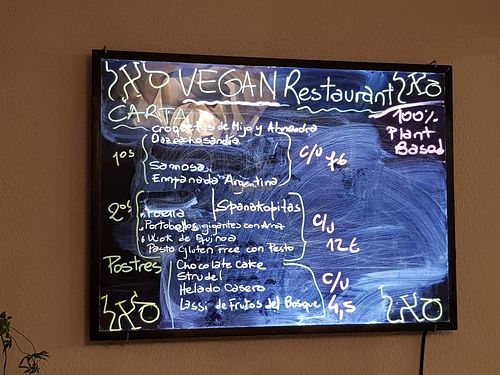 VEGAN Restaurant
CARTA
100%
Plant
Based
Croquetas de Mijo y Almendra
Gazpacho sandía
1os
Samosa
Empanada Argentina
c/u 7€
2os
Paella
Spanakopitas
Portobellos gigantes con Arroz
Wok de Quinoa
Pasta Gluten Free con Pesto
c/u
12€
Postres
Chocolate Cake
Strudel
Helado Casero
Lassi de Frutos del Bosque
c/u
4,5